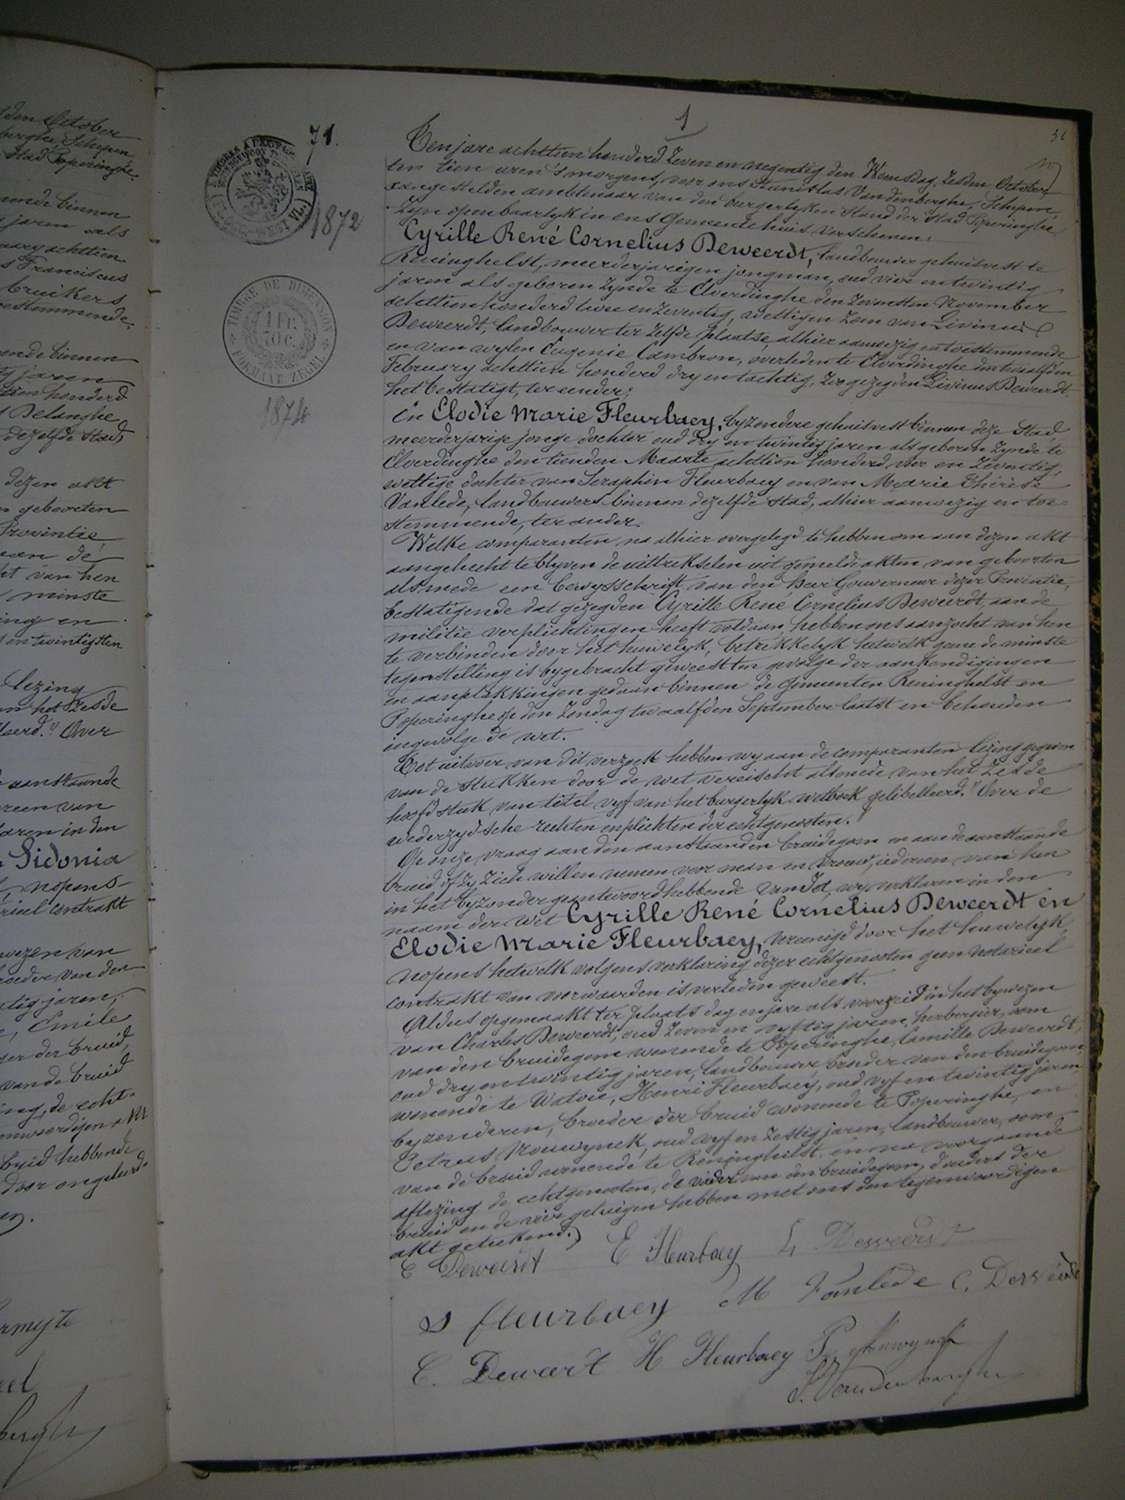 den October
berghe, Schepen
Stad Poperinghe.
binnen
jaren als
achttien
s Franciscus
bruikers
toestemmende
binnen
jaren
honderd
Belanghe
dezelfde stad
dezen akt
geboorten
Provintie
aan de
van hen
minste
ing en
en twintigsten
lezing
het Zesde
Over
aanstaande
van
in den
Sidonia
nopens
contrakt
van
van den
jaren,
Emile
der bruid,
van de bruid
de echt-
akt
hebbende
door ongeleerd-
71.
1872
TIMBRE DE DIMENSION
1 FR.
FORMAAT ZEGEL
1874
1
31
Ten jare achttien honderd zeven en negentig den Woensdag, zesden October
ten tien uren 's morgens, voor ons Stanislas Vandenberghe, Schepen,
aangestelden ambtenaar van den burgerlyken Stand der Stad Poperinghe
Zyn openbaarlyk in ons Gemeentehuis verschenen:
Cyrille René Cornelius Deweerdt, landbouwer gehuisvest te
Reninghelst, meerderjarigen jongman, oud vier en twintig
jaren als geboren zynde te Elverdinghe den November
achttien honderd twee en zeventig, wettigen zoon van Livinus
Deweerdt, landbouwer ter zelfde plaatse, alhier aanwezig en toestemmende
en van wylen Eugenie Cambron, overleden te Elverdinghe den twaalfden
February achttien honderd dry en tachtig, zoo gezegden Livinus Deweerdt
het bestatigt, ter eender;
En Elodie Marie Fleurbaey, byzondere gehuisvest binnen deze Stad
meerderjarige jonge dochter oud dry en twintig jaren als geboren zynde te
Elverdinghe den tienden Maarte achttien honderd vier en zeventig,
wettige dochter van Seraphin Fleurbaey en van Marie Thérèse
Vanlede, landbouwers binnen dezelfde stad, alhier aanwezig en toe-
stemmende, ter ander.
Welke comparanten, na alhier overgelegd te hebben om aan dezen akt
aangehecht te blyven de uittrekselen uit gemelde akten van geboorten
alsmede een bewysschrift van den Heer Gouverneur dezer Provintie,
bestatigende dat gezegden Cyrille René Cornelius Deweerdt, aan de
militie verplichtingen heeft voldaan hebben ons aanzocht van hen
te verbinden door het huwelyk, betrekkelyk hetwelk geene de minste
tegenstelling is bygebracht geweest ten gevolge der aankondigingen
en aanplakkingen gedaan binnen de Gemeenten Reninghelst en
Poperinghe op den Zondag twaalfden September laatst en behouden
ingevolge de wet.
Tot uitvoer van dit verzoek hebben wy aan de comparanten lezing gegeven
van de stukken door de wet vereischt alsmede van het Zesde
hoofdstuk van titel vyf van het burgerlyk wetboek gelibelleerd: "Over de
wederzydsche rechten en plichten der echtgenooten."
Op onze vraag aan den aanstaanden bruidegom en aan de aanstaande
bruid of zy zich willen nemen voor man en vrouw, iedereen van hen
in het byzonder geantwoord hebbende van Ja, wy verklaren in den
naam der wet Cyrille René Cornelius Deweerdt en
Elodie Marie Fleurbaey, vereenigd door het huwelyk,
nopens hetwelk volgens verklaring dezer echtgenooten geen notarieel
contrakt van voorwaarden is verleden geweest.
Aldus opgemaakt ter plaats dag en jare als voorzeid in het bywezen
van Charles Deweerdt, oud zeven en vyftig jaren, herbergier, oom
van den bruidegom wonende te Poperinghe, Camille Deweerdt,
oud dry en twintig jaren, landbouwer, broeder van den bruidegom,
wonende te Watou, Henri Fleurbaey, oud vyf en twintig jaren
byzonderen, broeder der bruid wonende te Poperinghe, en
Petrus Vrouwynck, oud vyf en zestig jaren, landbouwer, oom
van de bruid wonende te Reninghelst, en na voorgaande
aflezing de echtgenooten, de vader van den bruidegom, d'ouders der
bruid en de vier getuigen hebben met ons den tegenwoordigen
akt geteekend.
C Deweirdt E Fleurbaey L Deweerdt
S fleurbaey M Vanlede C. Deweerdt
C. Deweert H Fleurbaey P. Vrouwynck
S. Vandenberghe